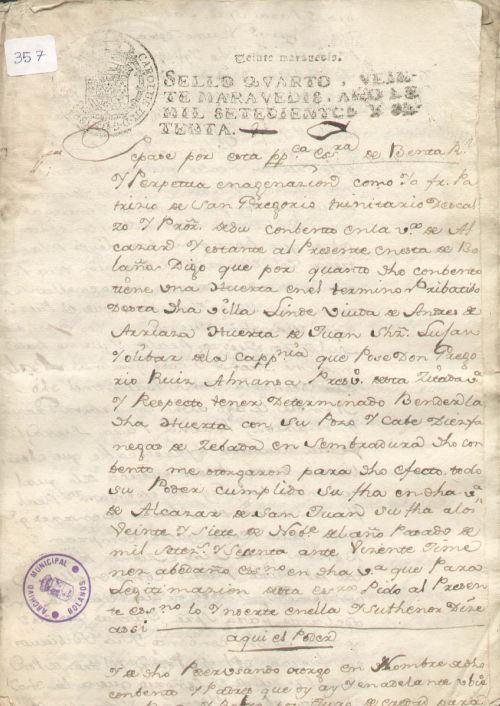 357
CAROLUS III
Veinte maravedis.
SELLO QVARTO, VEIN-
TE MARAVEDIS, AÑO DE
MIL SETECIENTOS Y SE-
TENTA.
Sepase por esta ppca Essra de Benta Rl
Y Perpetua enagenazion como Yo fr. Pa
trizio de San Gregorio trinitario Descal
zo Y Pror. de su conbento en la va de Al
cazar Y estante al Presente en esta de Bo
laños Digo que por quanto dho conbento
tiene una Huerta en el termino Pribatibo
Desta dha villa Linde Viuda de Andres de
Arriaza Huerta de Juan
Y olibar de la Cappnia que Posee Don Grego
rio Ruiz Almansa Presvo. desta Zitada va
Y Respecto tener Determinado Bender la
dha Huerta con su Pozo Y Cabe Diez fa
negas de Zebada en Sembradura dho con
bento me otorgaron para dho efecto todo
su Poder cumplido su fha en dha va
de Alcazar de San Juan su fha a los
Veinte Y Siete de Nobe del año Pasado de
mil setezs. Y Sesenta ante Vizente Xime
nez abedaño essno en dha va que Para
Legitimazion desta essra Pido al Presen
te essno lo Ynserte en ella Y su thenor Dize
assi
aqui el Poder
Y de dho Poder usando otorgo en Nombre de dho
conbento Y Padres que oy ay Y en adelante ubie
ARCHIVO MUNICIPAL
BOLAÑOS